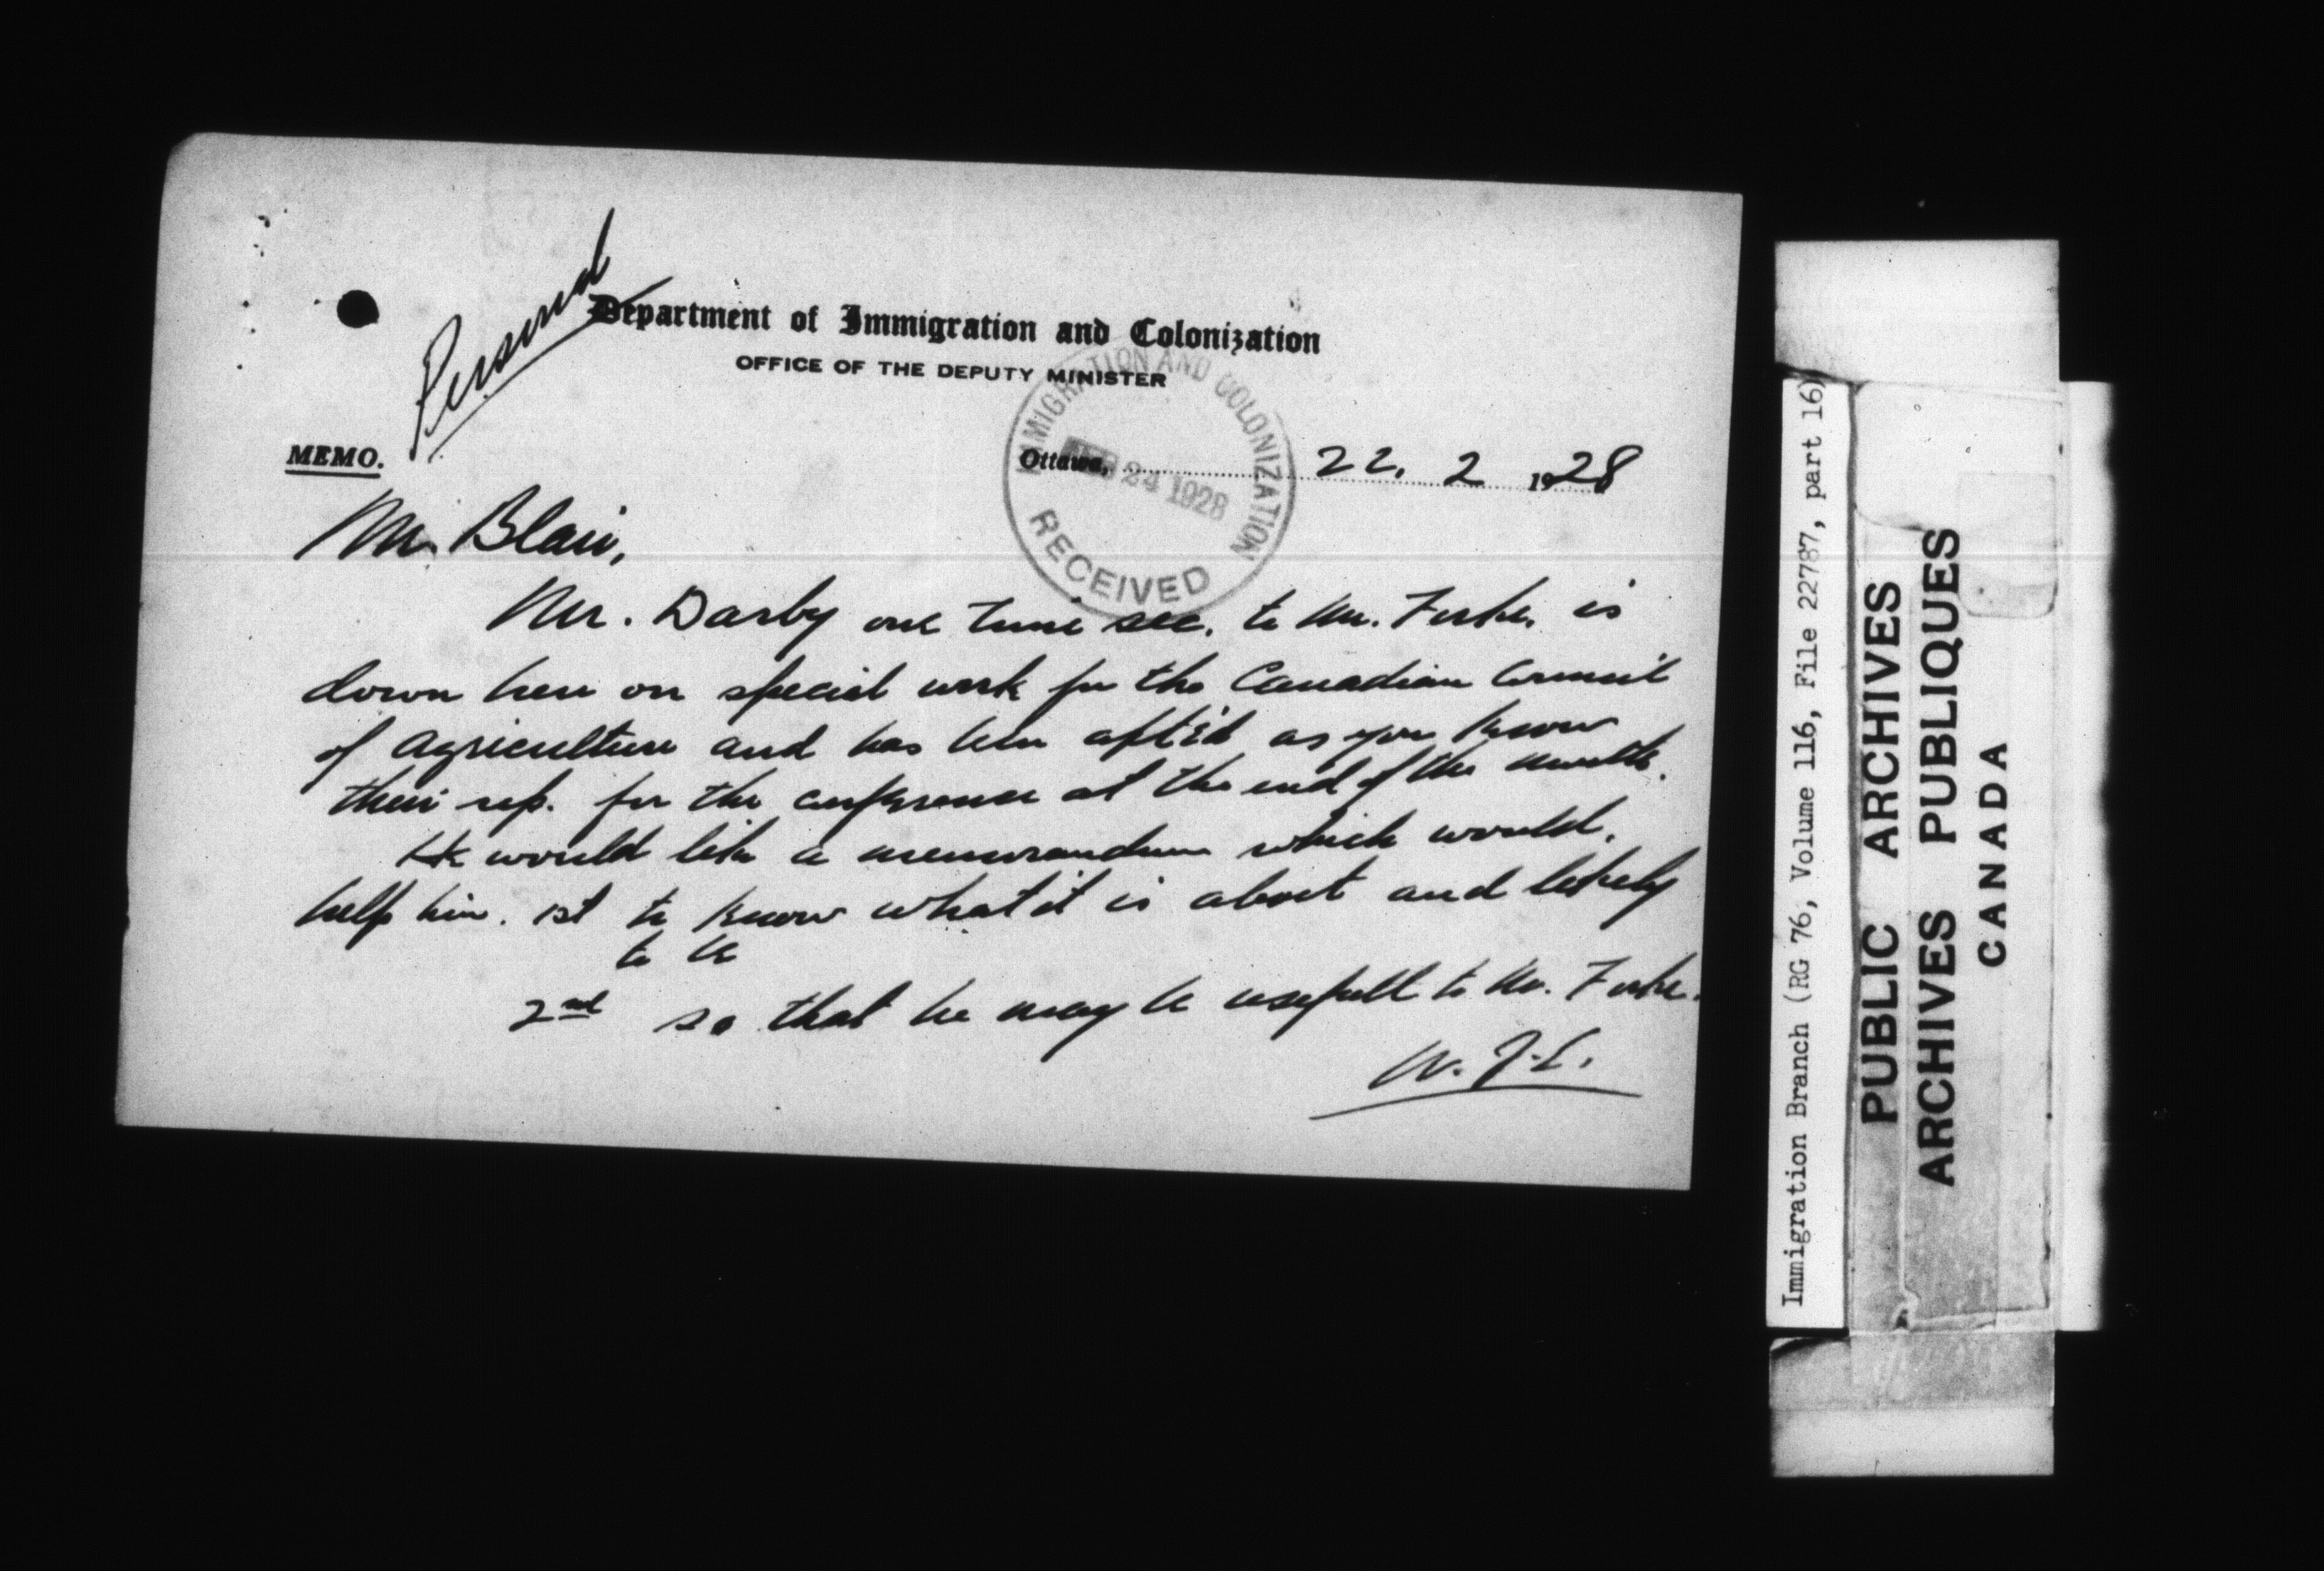 Personal
Department of Immigration and Colonization
OFFICE OF THE DEPUTY MINISTER
IMMIGRATION AND COLONIZATION
FEB 24 1928
RECEIVED
MEMO.
Ottawa, 22. 2 1928
Mr. Blair,
Mr. Darby one time sec. to Mr. Forke, is
down here on special work for the Canadian Council
of Agriculture and has been apt'ed as you know
their rep. for the conference at the end of the month.
He would like a memorandum which would,
help him. 1st to know what it is about and likely
to be
2nd so that he may be usefull to Mr. Forke.
W. J. E.
Immigration Branch (RG 76, Volume 116, File 22787, part 16)
PUBLIC ARCHIVES
ARCHIVES PUBLIQUES
CANADA